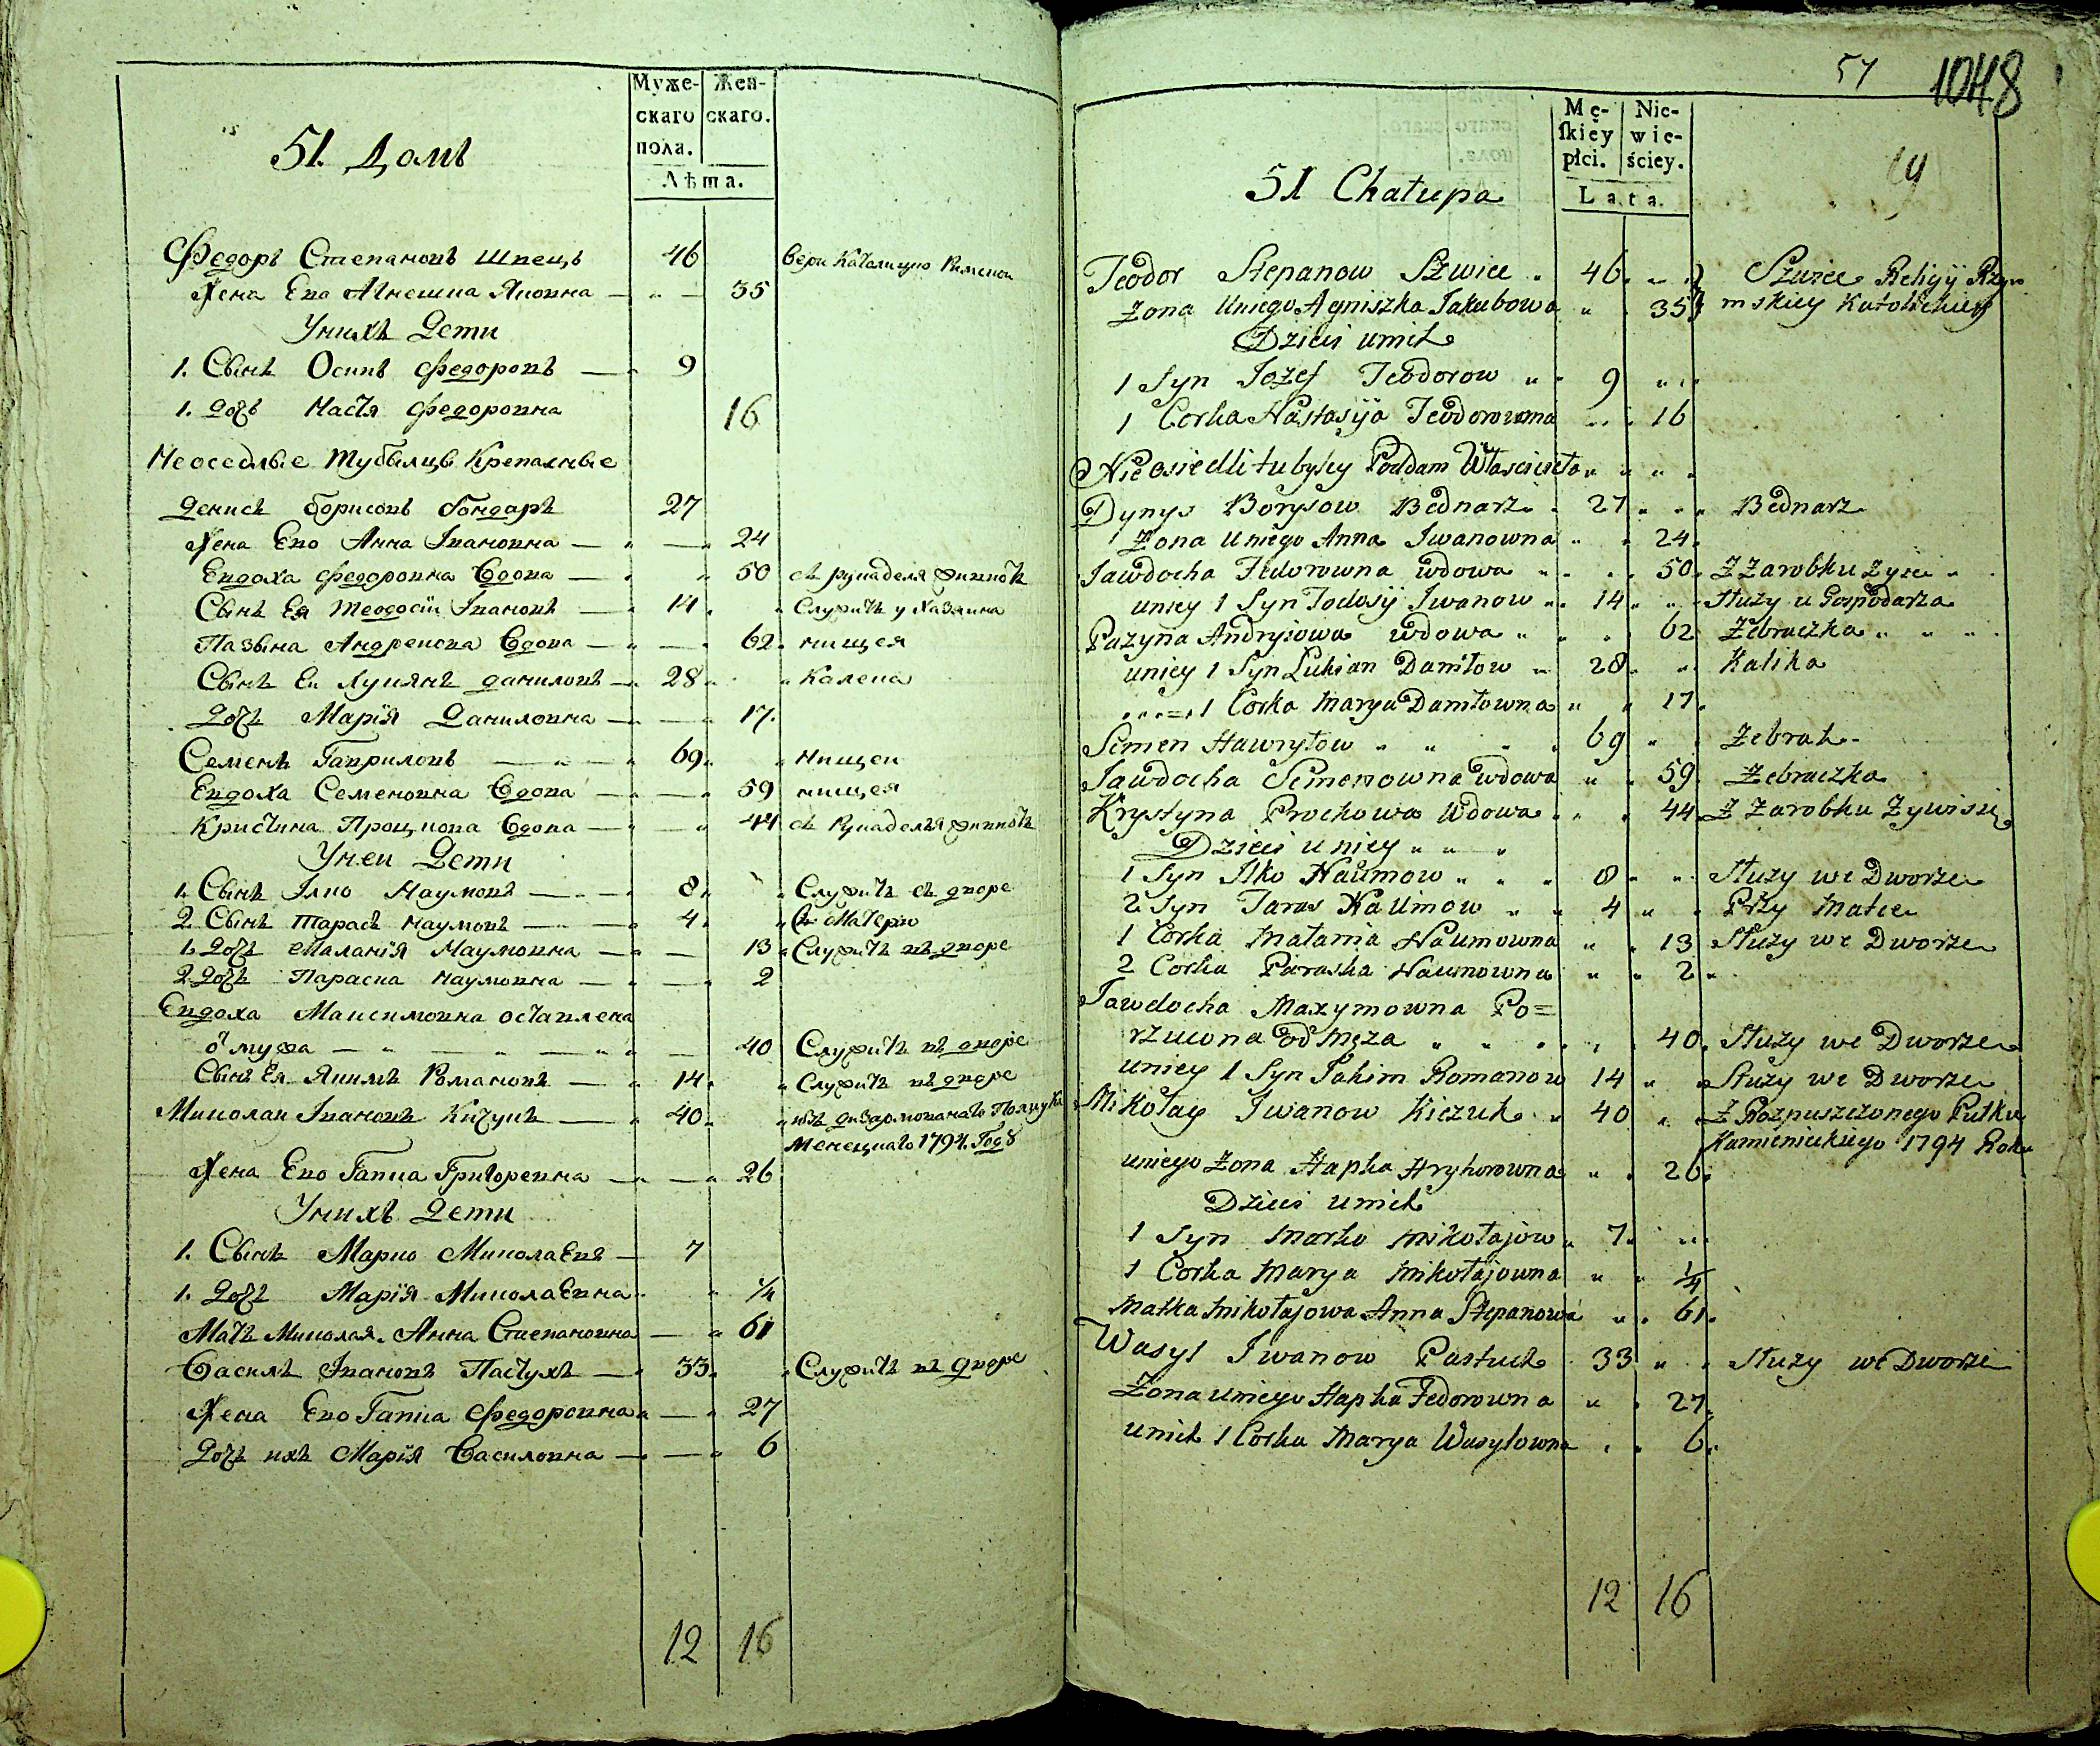 Муже-
скаго
пола.
Жен-
скаго.
Лѣта.
51. Домъ
Федоръ Степановъ Швецъ 46 вери Католицко Римской
Жена Его Агнешка Яковна — „ — 35
У нихъ Дети
1. Сынъ Осипъ Федоровъ — 9
1. Дочь Настя Федоровна 16
Неоседлые тубылцы Крепасные
Денисъ Борисовъ Бондаръ 27
Жена Его Анна Івановна — „ — 24
Евдоха Федоровна Вдова — „ 50 съ рукаделя живіотъ
Сынъ Ея Теодосій Івановъ — 14. „ Служитъ у Хазяина
Пазына Андреиова Вдова — „ — 62. нищея
Сынъ Ея Лукянъ Даниловъ — 28 „ Калека
Дочь Марія Даниловна — „ — 17.
Семенъ Гавриловъ — „ — 69. „ Нищей
Евдоха Семеновна Вдова — „ — 59 нищея
Кристина Процкова Вдова — „ — „ 44 съ Рукаделья живіотъ
У неи Дети
1. Сынъ Ілко Наумовъ — „ — 8. „ Служитъ въ дворе
2. Сынъ Тарасъ Наумовъ — „ — 4. „ При Матери
1. Дочь Маланія Наумовна — „ — 13 „ Служитъ въ дворе
2. Дочь Параска Наумовна — „ — 2
Евдоха Максимовна оставлена
о͏т мужа — „ — „ — „ — 40 Служитъ въ дворе
Сынъ Ея Якимъ Романовъ — „ 14. „ Служитъ въ дворе
Миколаи Івановъ Кичукъ — „ 40. „ изъ дизармованаго Полку Ка
менецкаго 1794. Года
Жена Его Гапка Григоревна — „ — „ 26
У нихъ Дети
1. Сынъ Марко Миколаевъ — 7
1. Дочь Марія Миколаевна „ „ 1/4
Мать Миколая. Анна Степановна — „ 61
Василь Івановъ Пастухъ — „ 33. „ Служитъ въ дворе
Жена Его Гапка Федоровна „ — „ 27
Дочь ихъ Марія Василовна — „ — „ 6
12 16
57 1048
Mę-
skiey
płci.
Nie-
wie-
ściey.
Lata.
51 Chałupa
Teodor Stepanow Szwiec 46 Szwiec Religij Rzy-
Żona Uniego Agniszka Jakubowa „ 35 mskiey Katolickiey
Dzieci unich
1 Syn Jozef Teodorow „ 9 „
1 Corka Nastasija Teodorowna „ 16
Nieosiedli tubylcy Poddam Własciciela „ „
Dynys Borysow Bednarz „ 27 „ „ Bednarz
Żona Uniego Anna Iwanowna „ 24.
Jawdocha Fedorowna wdowa „ „ 50. Z Zarobku Zyie „
uniey 1 Syn Todosij Iwanow „ 14 „ „ Służy u Gospodarza
Pazyna Andryiowa wdowa „ „ 62 Żebraczka „ „
uniey 1 Syn Lukian Daniłow „ 28 „ Kalika
„ „ = „ 1 Corka Marya Daniłowna „ „ 17.
Semen Hawryłow „ „ „ 69 „ Żebrak
Jawdocha Semenowna wdowa „ „ 59. Żebraczka
Krystyna Prochowa Wdowa „ „ 44. Z Zarobku Żywi się
Dzieci uniey „ „ „
1 Syn Ilko Naumow „ „ 8 „ „ Służy we Dworze
2 Syn Taras Naumow „ „ 4 „ Przy Matce
1 Corka Małania Naumowna „ 13 Służy we Dworze
2 Corka Paraska Naumowna „ „ 2 „
Jawdocha Maxymowna Po=
rzucona od Męża „ „ „ 40. Służy we Dworze
uniey 1 Syn Jakim Romanow 14 „ „ Służy we Dworze
Mikołay Iwanow Kiczuk „ 40 „ Z Rozpuszczonego Pułku
Kamienieckiego 1794 Roku
uniego Żona Hapka Hryhorowna „ 26.
Dzieci unich
1 Syn Marko Mikołajow „ 7. „
1 Corka Marya Mikołajowna „ „ 1/4
Matka Mikołajowa Anna Stepanowa „ 61.
Wasyl Iwanow Pastuch 33 „ „ Służy we Dworze
Żona Uniego Hapka Fedorowna „ 27.
unich 1 Corka Marya Wasylowna „ 6.
12 16